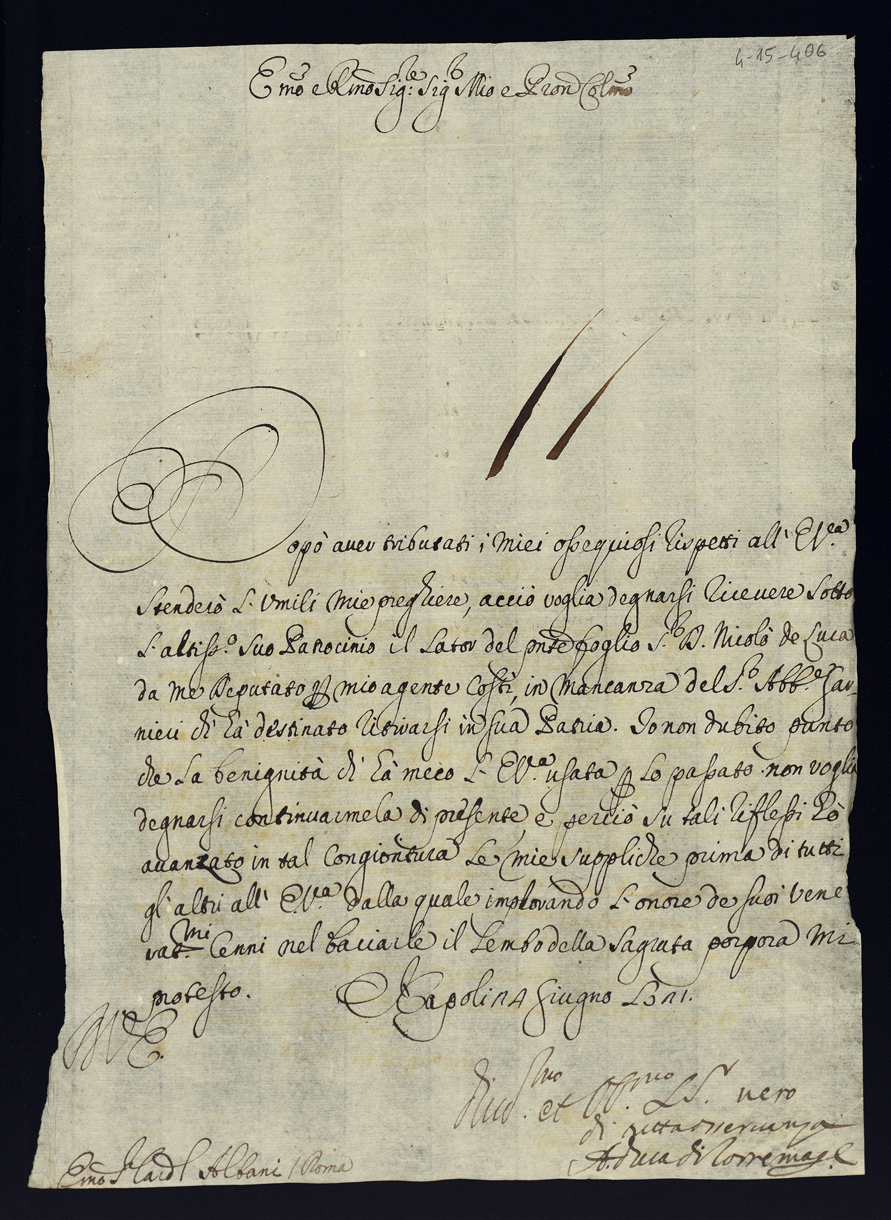 4-15-406
Emo e Rmo Sig:re Sig.r Mio e Pron Colmo
Dopò aver tributati i miei ossequiosi rispetti all' E.V.ra
stenderò l' umili mie preghiere, acciò voglia degnarsi ricevere sotto
l' altiss.o suo Patrocinio il lator del pnte foglio S.r D. Nicolò de Luca
da me Deputato p mio agente costì, in mancanza del S.r Abb.e Gar-
nieri ch' hà destinato ritirarsi in sua Patria. Io non dubito punto
che la benignità ch' hà meco l' E.V.a usata p lo passato non voglia
degnarsi continuarmela di presente, e perciò su tali riflessi hò
avanzato in tal congiontura le mie suppliche prima di tutti
gl' altri all' E.V.a dalla quale implorando l' onore de suoi vene
rat.mi Cenni nel baciarle il lembo della Sagrata porpora mi
protesto. Napoli 14 Giugno
D V.E.
Emo S.r Card.l Albani / Roma
Div.mo et Obb.mo vero
di
Duca di Torremag.e